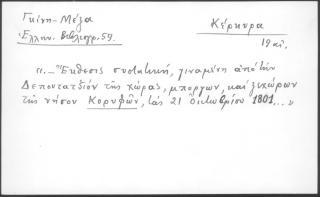 Γκίνη-Μέξα
Ἑλλην. Βιβλιογρ. 59.
Κέρκυρα
19 αἰ.
«.- Ἔκθεσις συστατική, γιναμένη ἀπὸ τὴν
Δεπουτατζιόν τῆς χώρας, μπόργων, καὶ ξεχώρων
τῆς νήσου Κορυφῶν, τὰς 21 Ὀκτωβρίου 1801...»